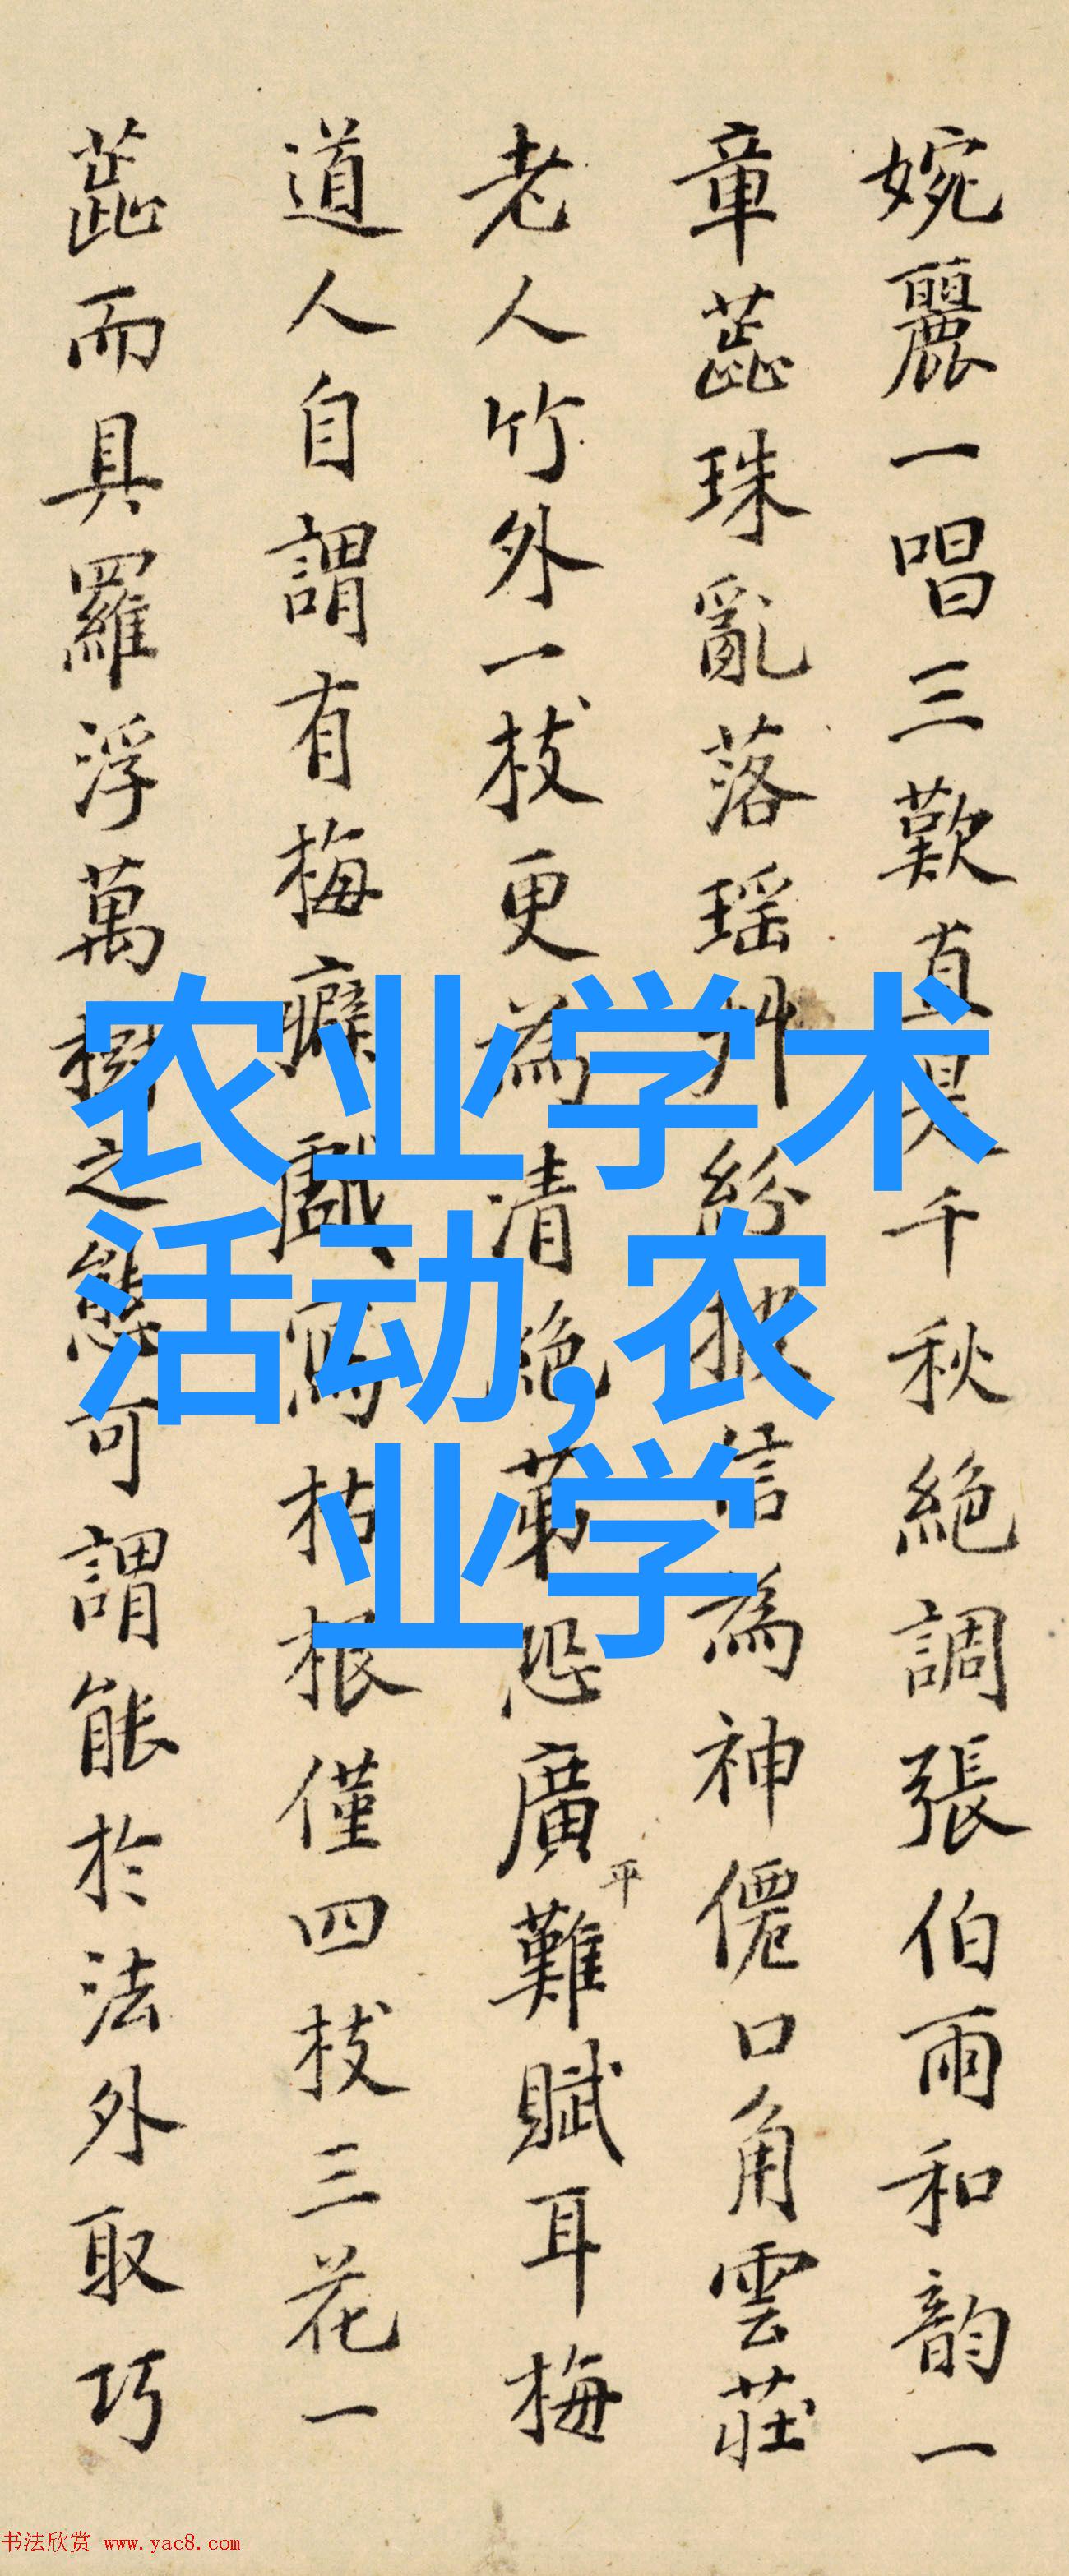 婉麗一唱三歎直是千秋絕調張伯雨和韵一
章蕋珠亂落瑶艸紛披信為神僊口角雲莊
老人竹外一枝更為清絕苐恐廣平難賦耳梅
道人自謂有梅癖戲寫枯根僅四枝三花一
蕋而具羅浮萬樹之態可謂能於法外取巧
农业学术
活动,农
业学
书法欣赏 www.yac8.com